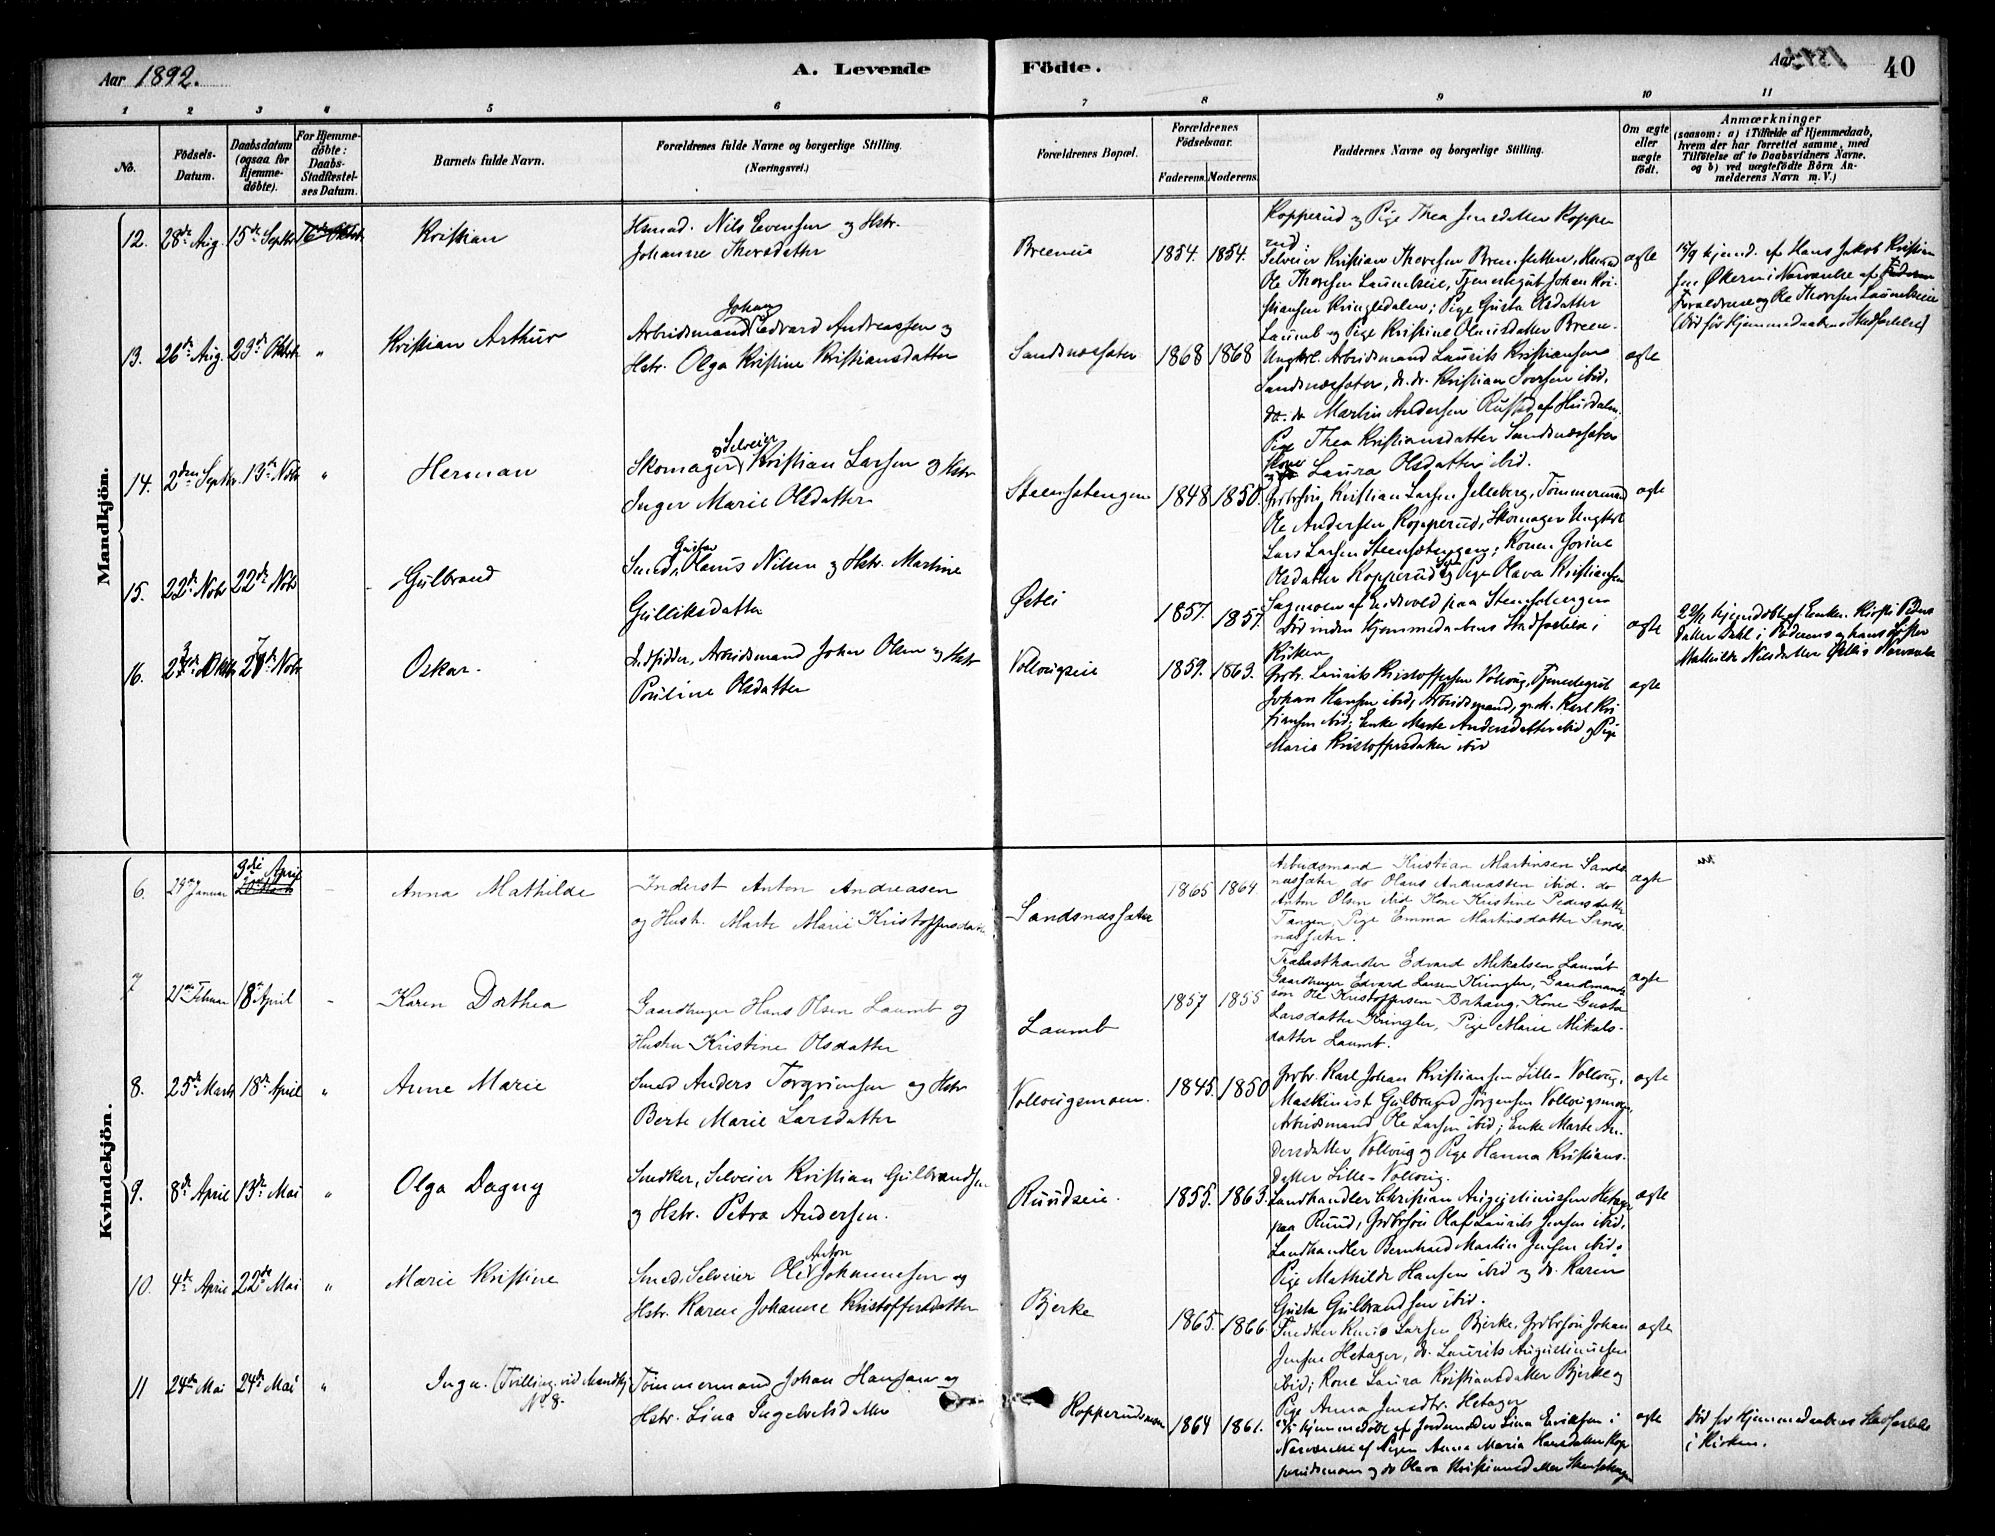 Aar 1892.
A. Levende Födte.
Aar
40
1 2 3 4 5 6 7 8 9 10 11
No.
Födsels-Datum.
Daabsdatum (ogsaa for Hjemme-döbte).
For Hjemme-döbte: Daabs-Stadfæstel-ses Datum.
Barnets fulde Navn.
Forældrenes fulde Navne og borgerlige Stilling.
(Næringsvei.)
Forældrenes Bopæl.
Forældrenes Födselsaar.
Faderens. Moderens.
Faddernes Navne og borgerlige Stilling.
Om ægte eller uægte födt.
Anmærkninger
(saasom: a) i Tilfælde af Hjemmedaab,
hvem der har forrettet samme, med
Tilföielse af to Daabsvidners Navne.
og b) ved uægtefödte Börn An-
melderens Navn m. V.)
Mandkjön.
12. 28de Aug. 15de Septbr Kristian
Husmd. Nils Evensen og Hstr.
Johanne Thorsdatter
Breeneie 1854. 1854.
Kopperud og Pige Thea Jensdatter Kopper
rud
Selveier Kristian Thoresen Breenstetten, Husmd
Ole Thoresen Laumbseie, Tjenestegut Johan Kri-
stiansen Kringlerdalen; Pige Gusta Olsdatter
Laumb og Pige Kristine Olausdatter Breen.
ægte
15/9 hjemd. af Hans Jakob Kristian
sen Økern i Nærværelse af
Forældrene og Ole Thoresen Laumbseie
(Död för Hjemmedaabens Stadfæstelse)
13. 26de Aug. 23de Oktbr " Kristian Arthur
Arbeidsmand Johan Edvard Andreassen og
Hstr. Olga Kristine Kristiansdatter
Sandsnæssæter 1868 1868
Ungkrl. Arbeidsmand Laurits Kristiansen
Sandsnæssæter, do. do. Kristian Iversen ibid,
do. do Martin Andersen Rustad af Hurdalen.
Pige Thea Kristiansdatter Sandsnæssæter
Kone Laura Olsdatter ibid.
ægte
14. 2den Septbr. 13de Novbr " Herman
Skomager og Selveier Kristian Larsen og Hstr
Inger Marie Olsdatter
Steensætengen 1848 1850.
Grbrsön, Kristian Larsen Jelleberg, Tömmermand
Ole Andersen Kopperud, Skomager Ungkrl
Lars Larsen Steensætengen; Konen Jorine
Olsdatter Kopperud og Pige Olava Kristiansen
Sagmoen af Eidsvold paa Steensætengen
ægte
15. 22de Novbr 22de Novbr Gulbrand
Smed, Gustav Olaus Nilsen og Hstr. Martine
Gulliksdatter
Østli 1857. 1857.
Död inden Hjemmedaabens Stadfæstelse i
Kirken
ægte
22/11 hjemdöbt af Enken Kirsti Peders
datter Dahl i Faderens og hans Söster
Mathilde Nilsdatter Østlis Nærværelse
16. 23de Oktbr 27de Novbr Oskar.
Indsidder, Arbeidsmand Johan Olsen og Hstr
Pauline Olsdatter
Vollaugseie 1859. 1863.
Grbr. Laurits Kristoffersen Vollaug, Tjenestegut
Johan Hansen ibid, Arbeidsmand, gift. Karl Kri
stiansen ibid; Enke Marte Andersdatter ibid og Pige
Maria Kristoffersdatter ibid
ægte
Kvindekjön.
6. 29de Januar 9de April – Anna Mathilde
Inderst Anton Andreasen
og Hustr. Marte Marie Kristoffersdatter
Sandsnæssæter 1865 1864
Arbeidsmand Kristian Martinsen Sands
næssæter do Olaus Andreassen ibid. do
Anton Olsen ibid Kone Kristine Pedersdatter
Tangen, Pige Emma Martinsdatter Sands
næssæter.
ægte
7 21de Februar 18de April – Karen Dorthea
Gaardbruger Hans Olsen Laumb og
Hustru Kristine Olsdatter
Laumb 1857 1855
Trælasthandler Edvard Mikalsen Laumb
Gaardbruger Edvard Larsen Kringler, Gaardmands
sön Ole Kristoffersen Borhaug, Kone Gusta
Larsdatter Kringler, Pige Marie Mikals-
datter Laumb.
ægte
8. 25de Marts 18de April " Anne Marie
Smed Anders Torgrimsen og Hstr
Berte Marie Larsdatter
Vollaugsmoen. 1845. 1850
Grbr. Karl Johan Kristiansen Lille-Vollaug,
Maskinist Gulbrand Jörgensen Vollaugsmoen,
Arbeidsmand Ole Larsen ibid; Enke Marte An-
dersdatter Vollaug og Pige Hanna Kristians-
datter Lille-Vollaug.
ægte
9. 8de April 13de Mai " Olga Dagny
Snedker, Selveier Kristian Gulbrandsen
og Hstr. Petra Andersen.
Ruudseie. 1855. 1863.
Landhandler Christian Augustinussen Hetager
paa Ruud, Grbrsön Olaf Laurits Jensen ibid,
Landhandler Bernhard Martin Jensen ibid;
Pige Mathilde Hansen ibid og do. Karen
Gusta Gulbrandsen ibid.
ægte
10. 4de April 22de Mai " Marie Kristine
Smed, Selveier Ole Anton Johannesen og
Hstr. Karen Johanne Kristoffersdatter
Bjerke 1865. 1866.
Snedker Larsen Bjerke, Grbrsön Johan
Jensen Hetager, do. Laurits Augustinussen
ibid; Kone Laura Kristiansdatter Bjerke og
Pige Anna Jensdtr. Hetager
ægte
11 24de Mai 24de Mai " Inga. (Tvilling, vid Mandkj
No 8.
Tömmermand Johan Hansen og
Hstr. Lina Ingebretsdatter
Kopperudsmoen 1864 1861.
hjemmedöbt af Jordemoder Lina Eriksen i
Nærværelse af Pigen Anna Maria Hansdatter Kop
perudsmoen og do Olava Kristiansdatter Steensætengen
ægte
Död för Hjemmedaabens Stadfæstelse
i Kirken.